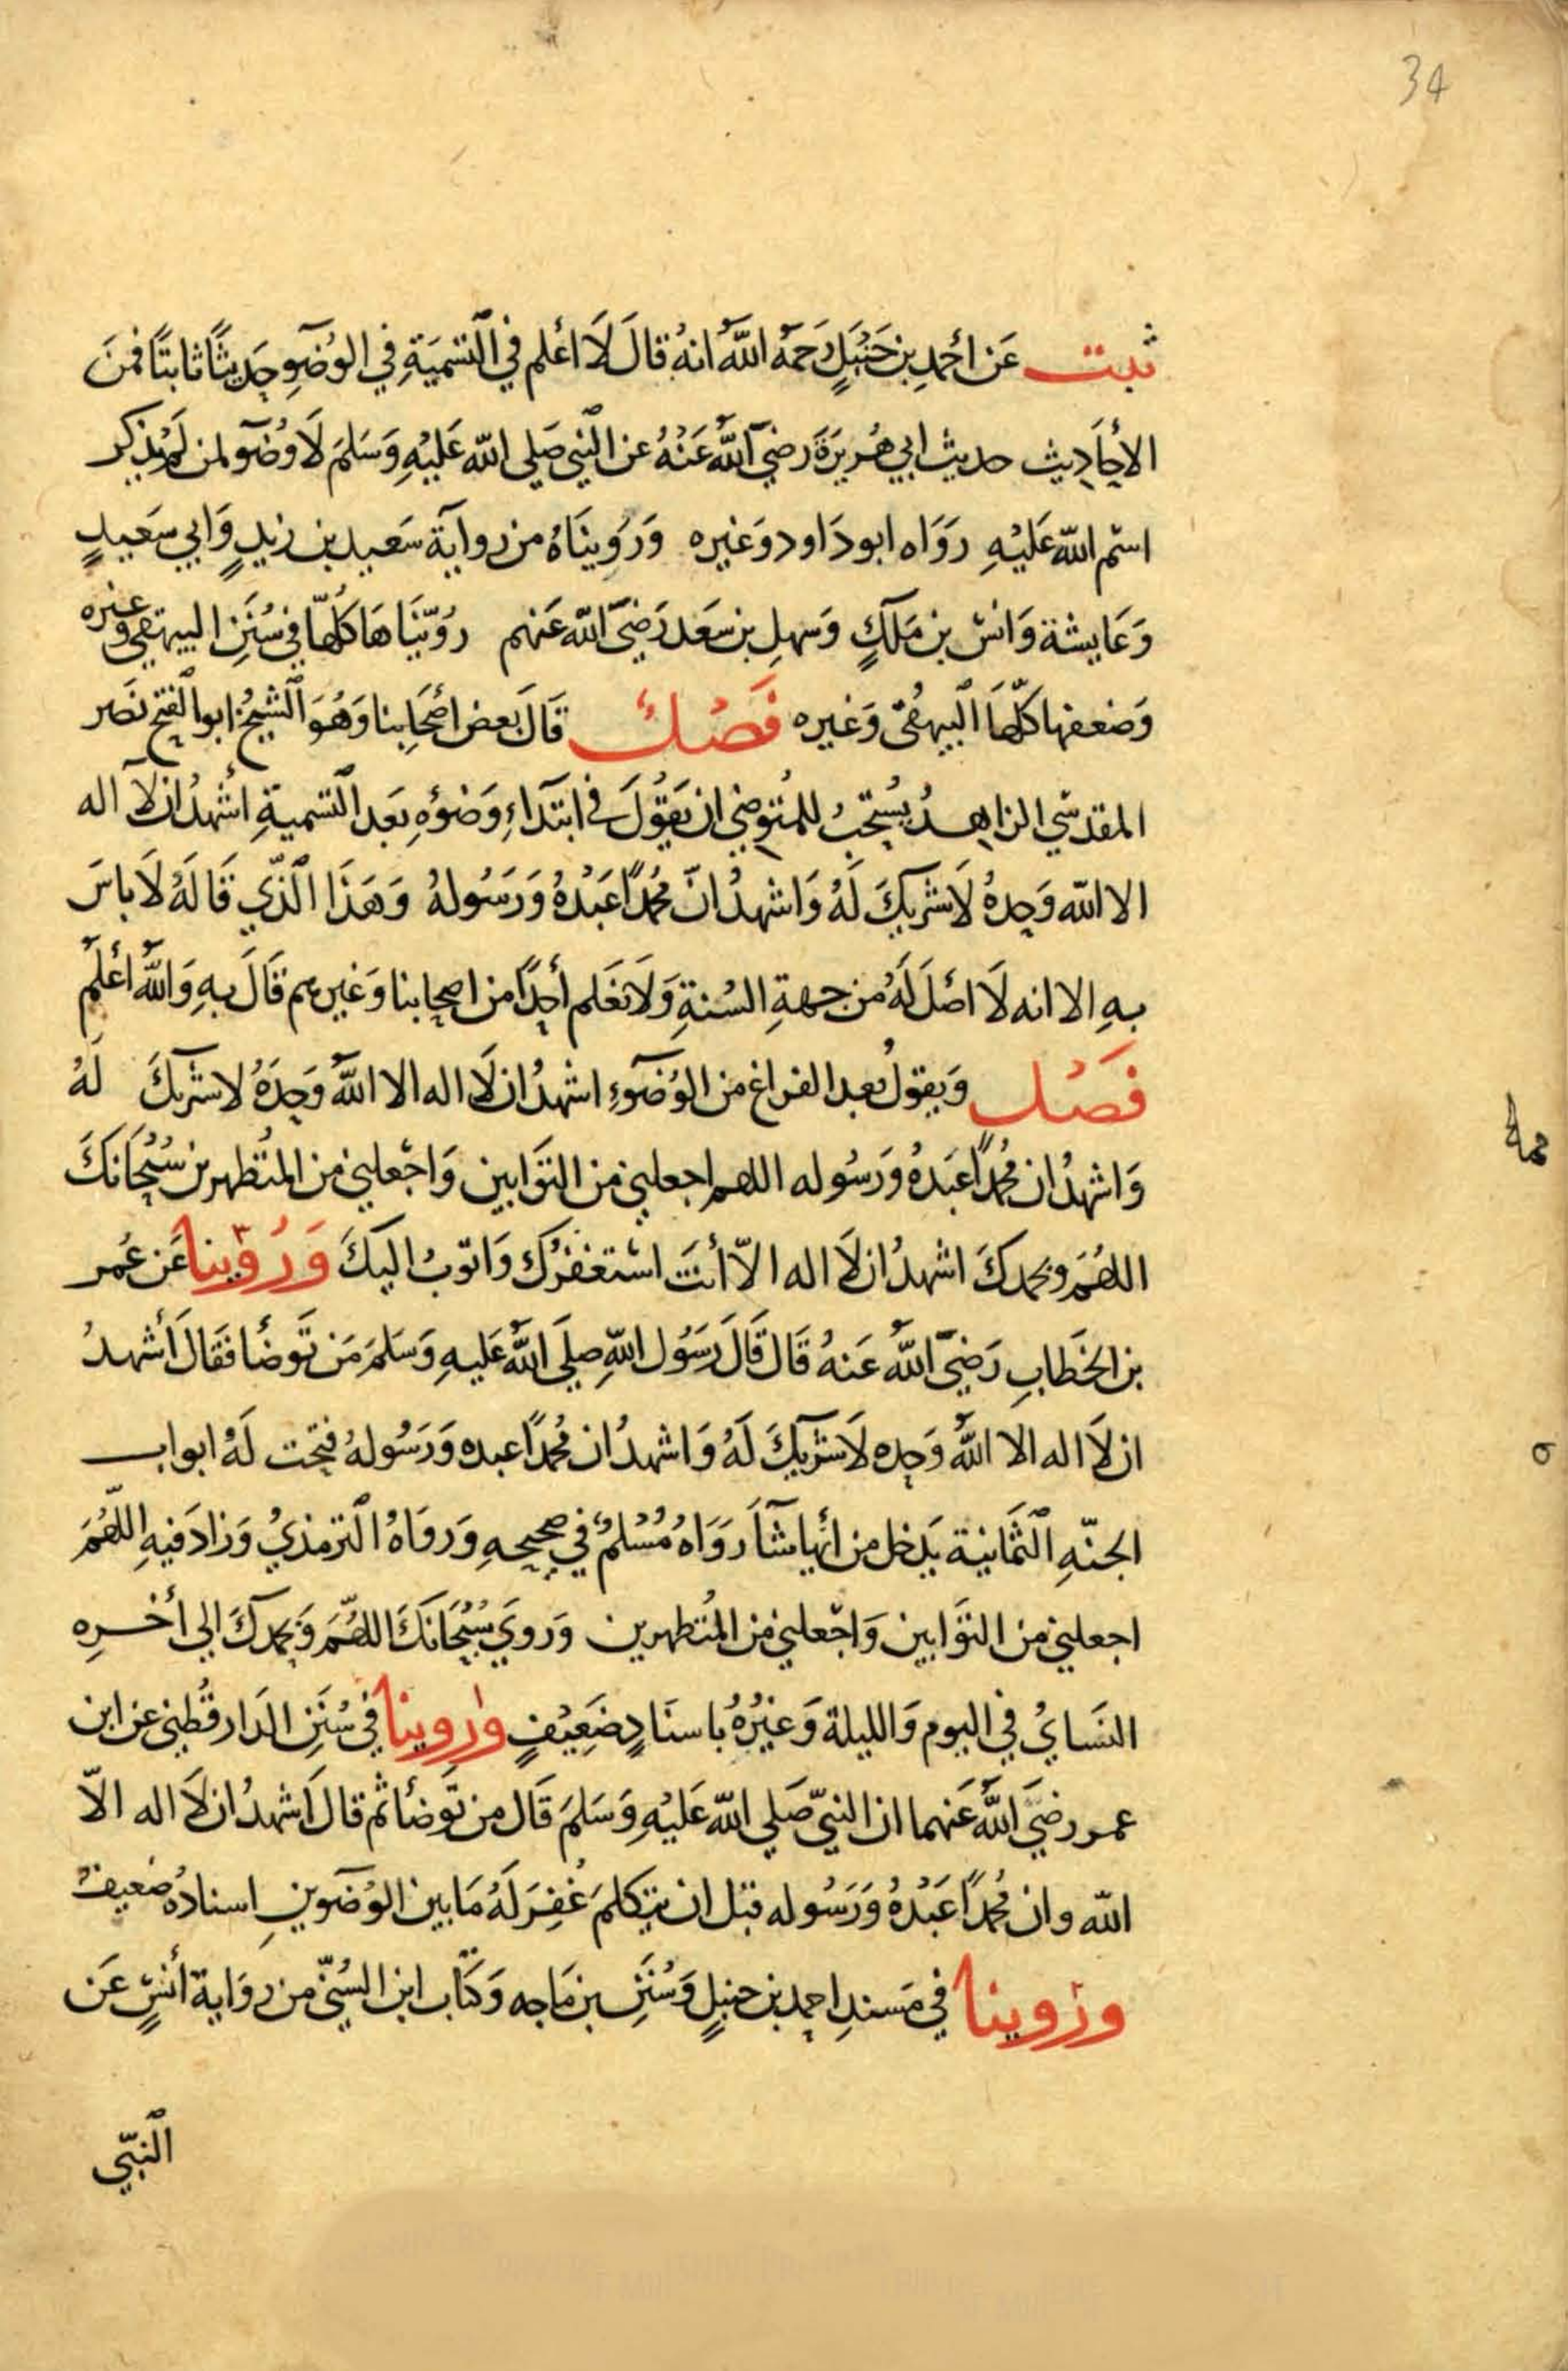 34
ثبت عَن احمدِ بن حَنبَلٍ رَحمَهُ اللهُ انهُ قالَ لَا اعلم في التسميَةِ في الوُضوِ حَديثًا ثابتًا فمنَ
الاحَادِيث حديث ابي هُريرَةَ رضيَ اللهُ عَنْهُ عن النبي صَلي الله عَليْهِ وَسَلمَ لَا وُضوَ لمن لَم يذكر
اسم الله عَليْهِ روَاه ابو دَاود وَغيره وَرُوينَاهُ من روايَة سَعيد بن زيدٍ وَابي سَعيدٍ
وَعَايشة وَانس بن مَلكٍ وَسهلِ بن سعَد رَضيَ الله عَنهم رُوّينَاهَا كلُّها في سُنَنِ البيهقي وغيره
وَضعفها كلّهَا البيهقي وَغيره فَصْلٌ قَالَ بعض اصحَابنا وَهُوَ الشيخُ ابو الفتح نصَر
المقدسّي الزاهدُ يُستحَبُ للمُتوضي ان يَقُولَ في ابتدَاءِ وَضوُهِ بَعد التسميةِ أشهدُ ان لا اله
الا الله وَحدهُ لَا شريكَ لَهُ وَاشهدُ انّ مُحمدًا عَبْدُهُ وَرَسُولهُ وَهَذَا الّذي قَالَهُ لَا باسَ
بهِ الا انه لَا اصْلَ لَهُ من جهةِ السُنةِ وَلَا نَعَلم أحدًا من اصحابنا وَغيرهم قَالَ بهِ وَاللهُ أعْلم
فَصْل وَيقولُ بعد الفراغ من الوُضوءِ اشهدُ ان لَا اله الا اللهُ وَحدَهُ لا شريكَ لَهُ
وَاشهدُ ان مُحمدًا عَبدُهُ وَرَسُوله اللهم اجعلني من التوَابين وَاجْعلني من المُتطهرين سُبْحَانكَ
اللهُمَ وبحمدكَ اشهدُ ان لَا اله الّا أنتَ استغفرُك وَاتوبُ اليكَ وَرُوّينا عَن عُمر
بن الخَطابِ رَضيَ اللهُ عَنهُ قَال قَالَ رَسُول اللهِ صَلي اللهُ عَليهِ وَسَلمَ مَن تَوضأ فقَالَ أشهدُ
ان لَا اله الا اللهُ وَحده لَا شريكَ لَهُ وَاشهدُ ان مُحمدًا عبده وَرَسُولهُ فتحت لَهُ ابواب
الجنّهِ الثمَانية يَدخل من أيها شَآ رَوَاهُ مُسْلمٌ في صحيحهِ وَروَاهُ الترمذيُ وَزادَ فيهِ اللّهُمَ
اجعلني من التوَابين وَاجعلني من المُتطهرين وَروي سُبْحَانكَ اللهُمّ وَبحمدكَ الي أخرهِ
النسَايُ في اليوم وَالليلة وَغيْرُهُ باسنَادٍ ضَعِيْفٍ ورُوينا في سُنَنِ الدَار قُطني عن ابن
عمر رضيَ اللهُ عَنهما ان النبيّ صَلي الله عَليْهِ وَسَلمَ قَال من تَوضأ ثم قالَ أشهدُ ان لَا اله الّا
الله وان مُحمدًا عَبْدُهُ وَرَسُوله قبل ان يتكلمَ غُفِرَ لَهُ مَا بين الوُضوين اسنادُهُ ضعيفٌ
ورُوينا في مَسندِ احمد بن حنبلٍ وَسُنَنِ بن مَاجه وَكتَاب ابن السُنّي من روَاية أنسٍ عَن
النبّي